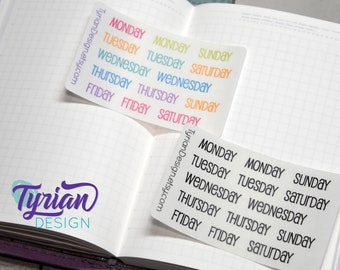 MONDAY MONDAY SUNDAY
TUESDAY TUESDAY SATURDAY
WEDNESDAY WEDNESDAY
THURSDAY THURSDAY SUNDAY
FRIDAY FRIDAY SATURDAY
TyrianDesign.etsy.com
MONDAY MONDAY SUNDAY
TUESDAY TUESDAY SATURDAY
WEDNESDAY WEDNESDAY
THURSDAY THURSDAY SUNDAY
FRIDAY FRIDAY SATURDAY
TyrianDesign.etsy.com
Tyrian
DESIGN